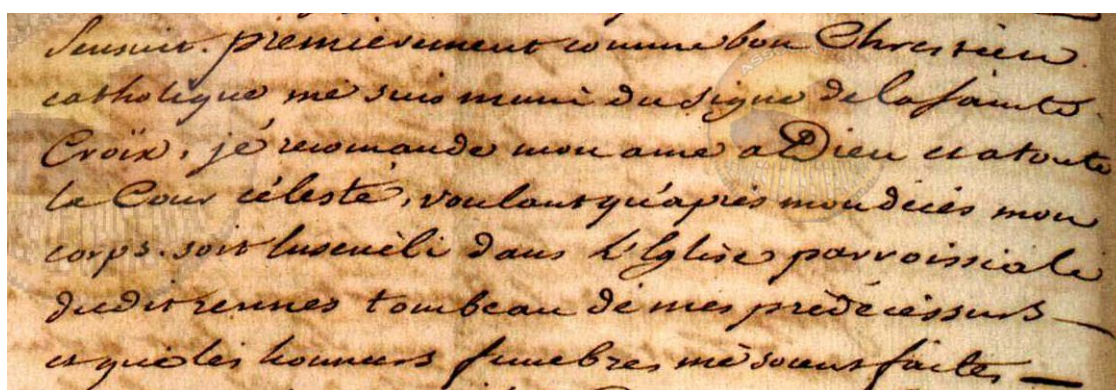 Sensuit. premierement comme bon Chrestien
catholique me suis muni du signe de la sainte
Croix, je recomande mon ame a Dieu et a toute
la Cour céleste, voulant qu'après mon décès mon
corps. soit enseveli dans l'Eglise parroissiale
dudit rennes tombeau de mes prédécessurs
et que les honneurs funebres me soient faites